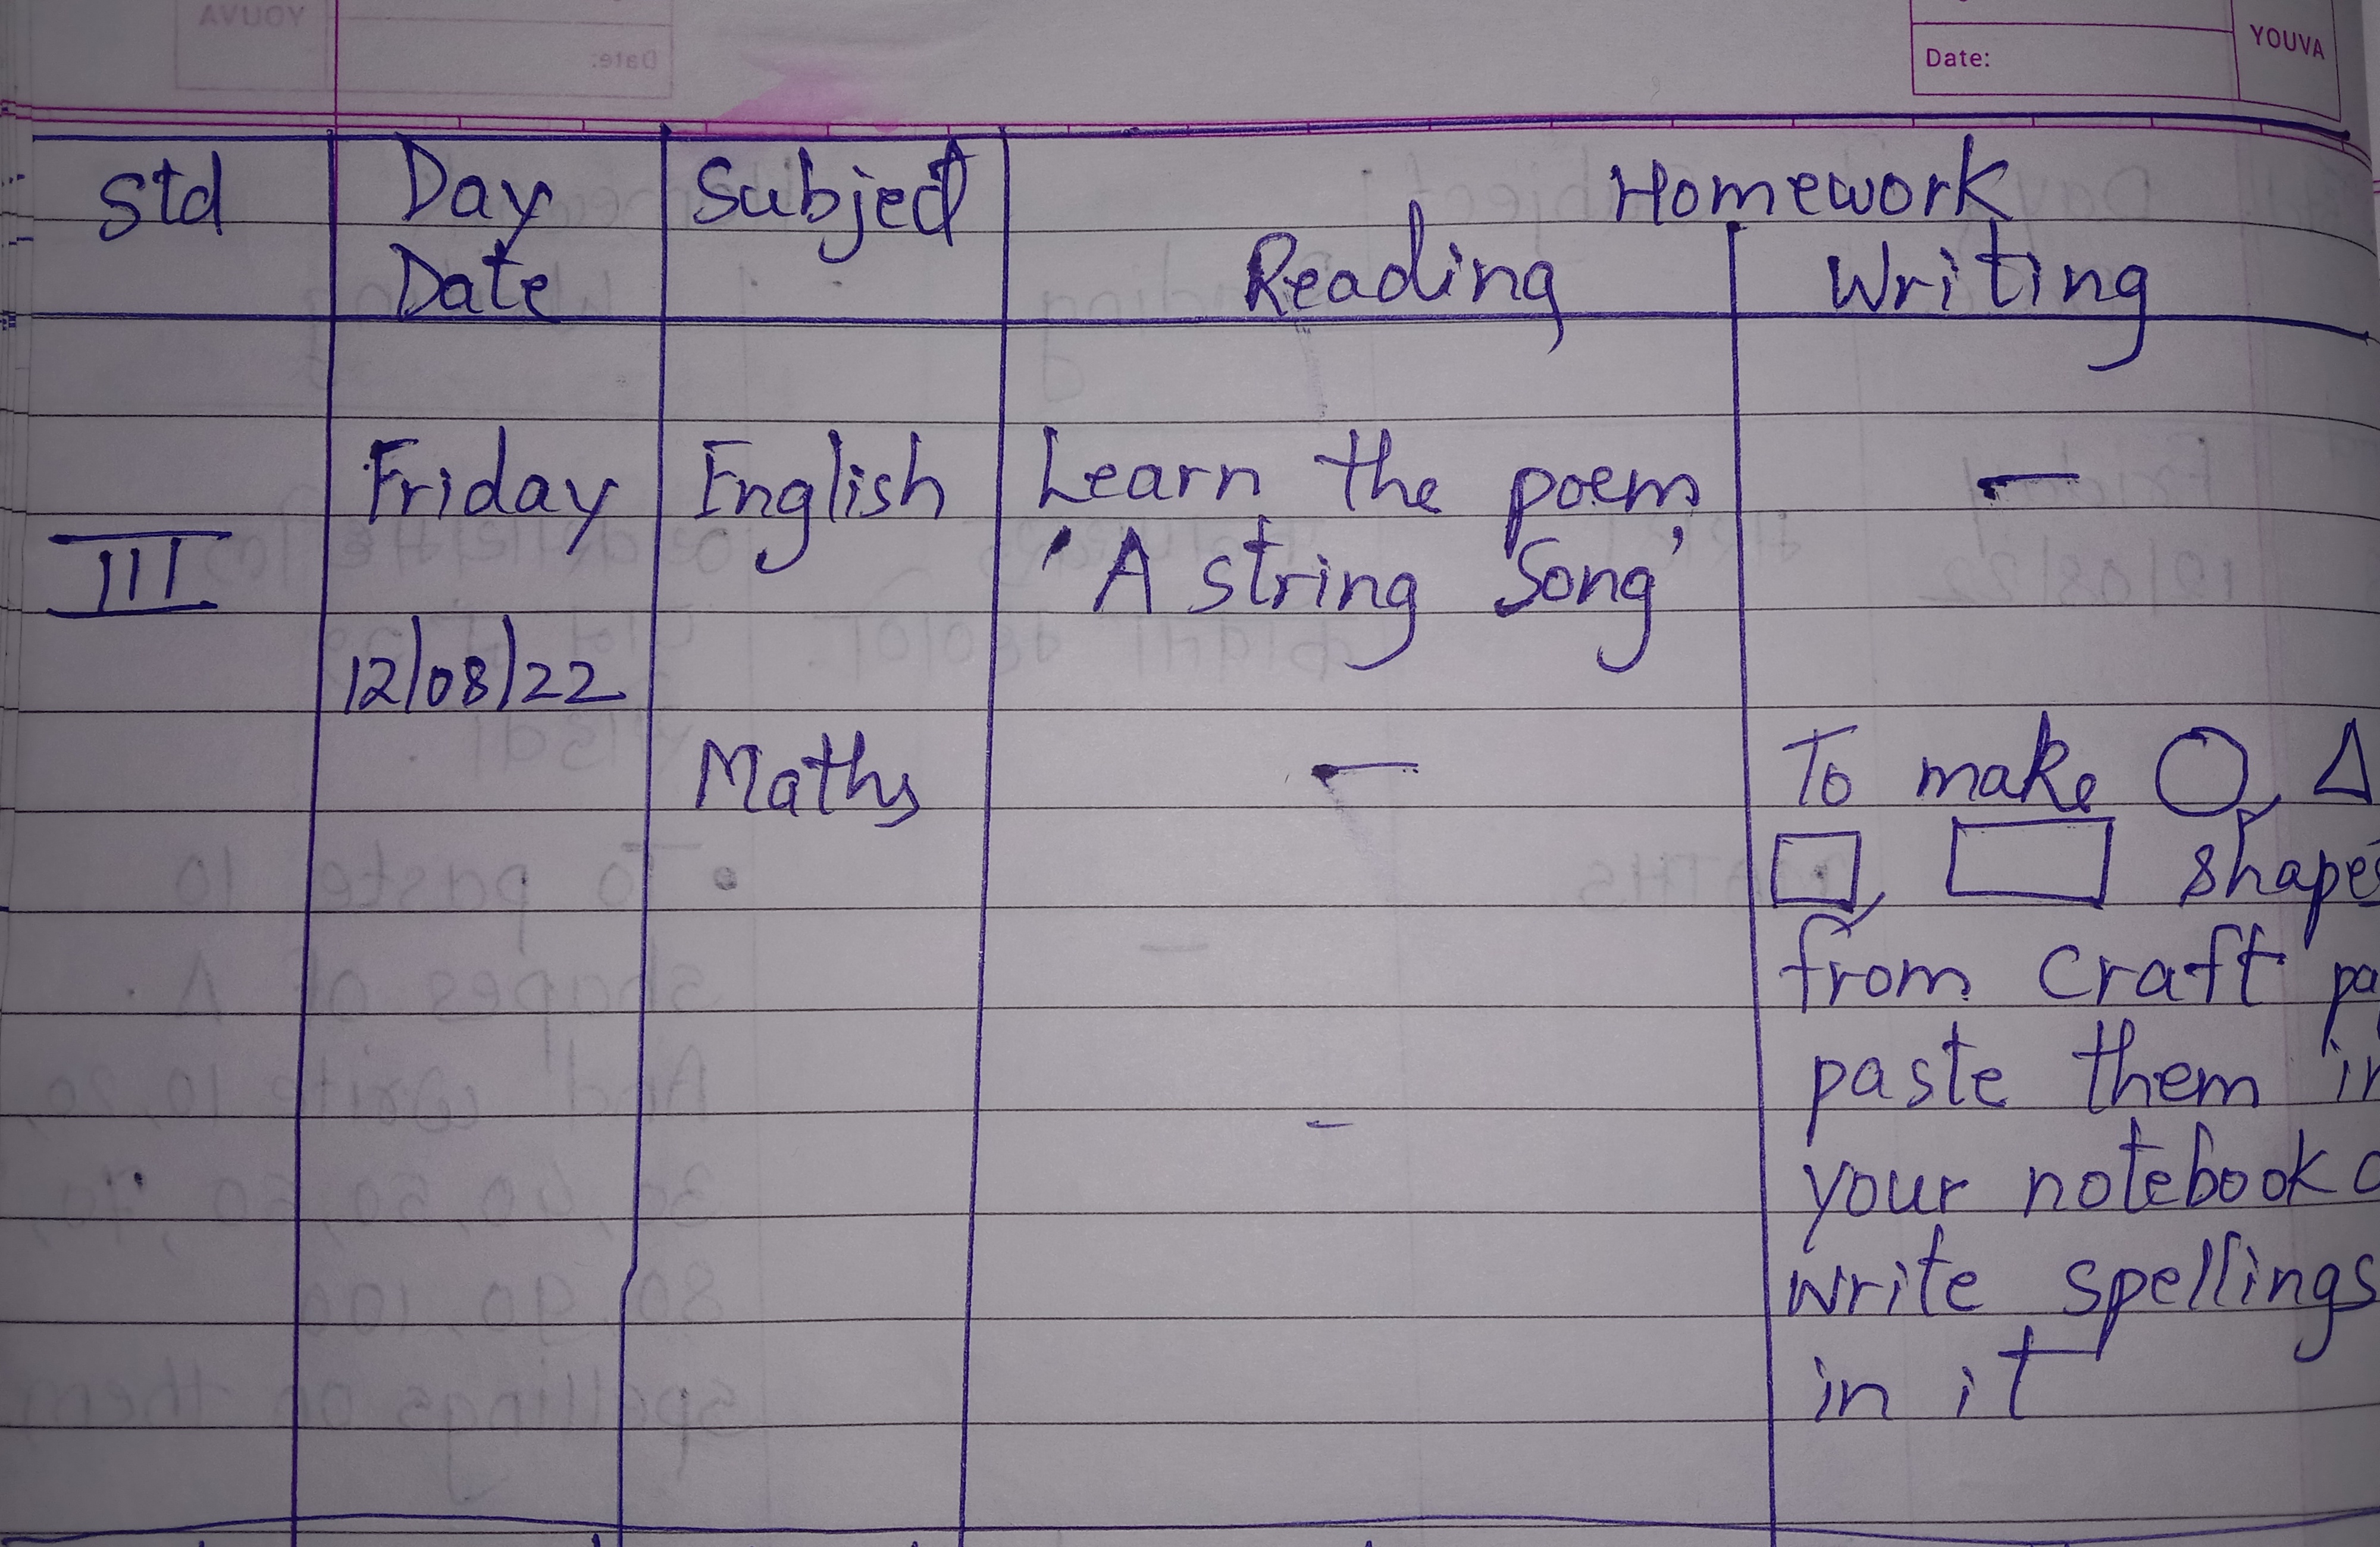 Date:
YOUVA
Std Day Subject Homework
Date Reading Writing
Friday English Learn the poem —
III 'A string Song'
12/08/22
Maths — To make ○, △
□, ▭ shapes
from craft
paste them in
your notebook
write spellings
in it